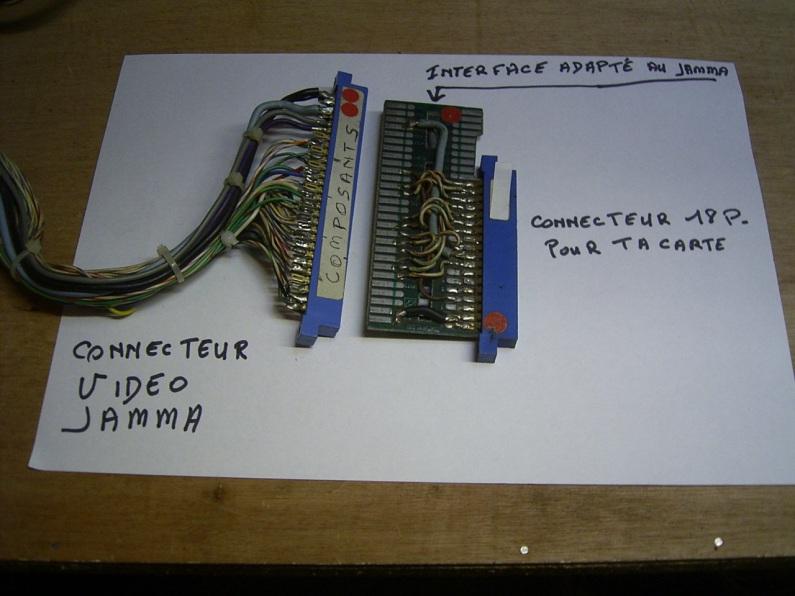 INTERFACE ADAPTÉ AU JAMMA
COMPOSANTS
CONNECTEUR 18 P.
POUR TA CARTE
CONNECTEUR
VIDEO
JAMMA